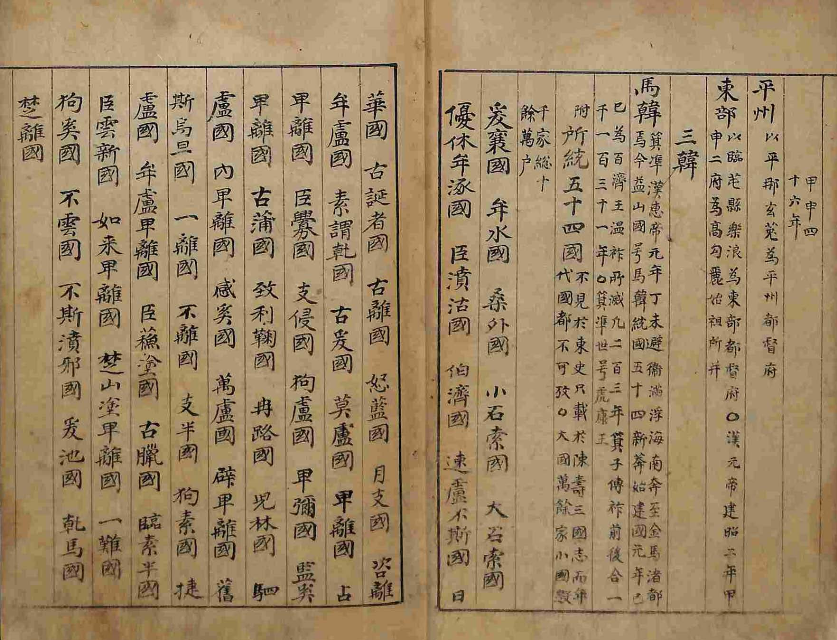 甲申四
十六年
平州以平那玄菟爲平州都督府
東部以臨芚縣樂浪爲東部都督府○漢元帝建昭二年甲
申二府爲高句麗始祖所并
三韓
馬韓箕準漢惠帝元年丁未避衛滿浮海南奔至金馬渚都
焉今益山國号馬韓統國五十四新莾始建國元年己
巳爲百濟王温祚所滅凡二百三年箕子傳祚前後合一
千一百三十一年○箕準世号虎康王
附所統五十四國不見於東史只載於陳壽三國志而年
代國都不可攷○大國萬餘家小國數
千家総十
餘萬户
爰襄國 牟水國 桑外國 小石索國 大石索國
優休牟涿國 臣濆沽國 伯濟國 速盧不斯國 日
華國 古誕者國 古離國 怒藍國 月支國 咨離
牟盧國 素謂乹國 古爰國 莫盧國 卑離國 占
卑離國 臣釁國 支侵國 狗盧國 卑彌國 監奚
卑離國 古蒲國 致利鞠國 冉路國 児林國 駟
盧國 內卑離國 感奚國 萬盧國 辟卑離國 舊
斯烏旦國 一離國 不離國 支半國 狗素國 捷
盧國 牟盧卑離國 臣蘓塗國 古臘國 臨素半國
臣雲新國 如来卑離國 楚山塗卑離國 一難國
狗奚國 不雲國 不斯濆邪國 爰池國 乹馬國
楚離國